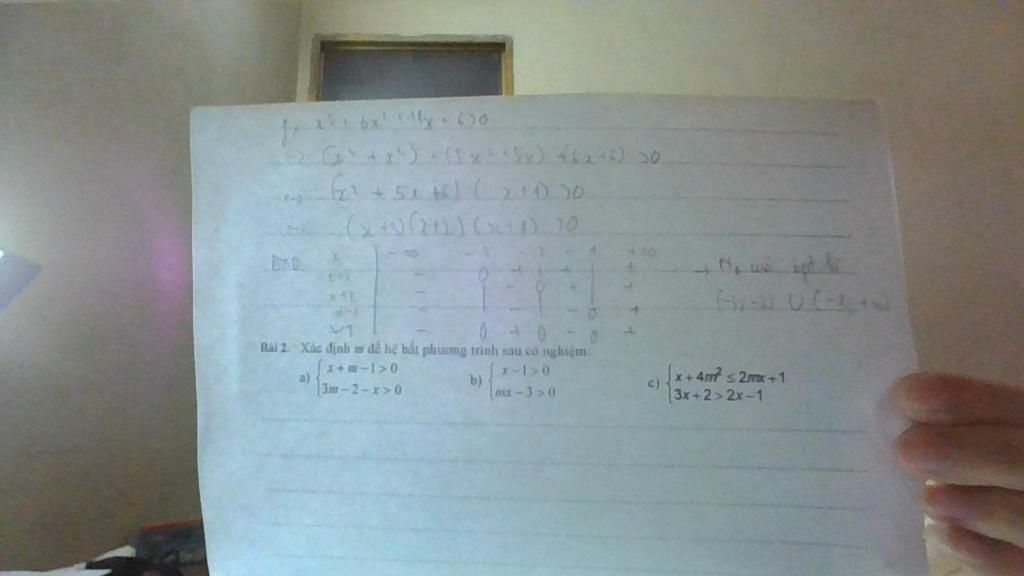 f, x³ + 6x² + 11x + 6 > 0
(x³ + x²) + (5x² + 5x) + (6x + 6) > 0
(x² + 5x + 6) (x + 1) > 0
(x + 3) (x + 2) (x + 1) > 0
BXD x -∞ -3 -2 -1 +∞
x+3 - 0 + | + | +
x+2 - | - 0 + | +
- | - | - 0 +
VT - 0 + 0 - 0 +
→ No của bpt là
(-3; -2) ∪ (-1; +∞)
Bài 2. Xác định m để hệ bất phương trình sau có nghiệm:
a) { x + m − 1 > 0
3m − 2 − x > 0
b) { x − 1 > 0
mx − 3 > 0
c) { x + 4m² ≤ 2mx + 1
3x + 2 > 2x − 1